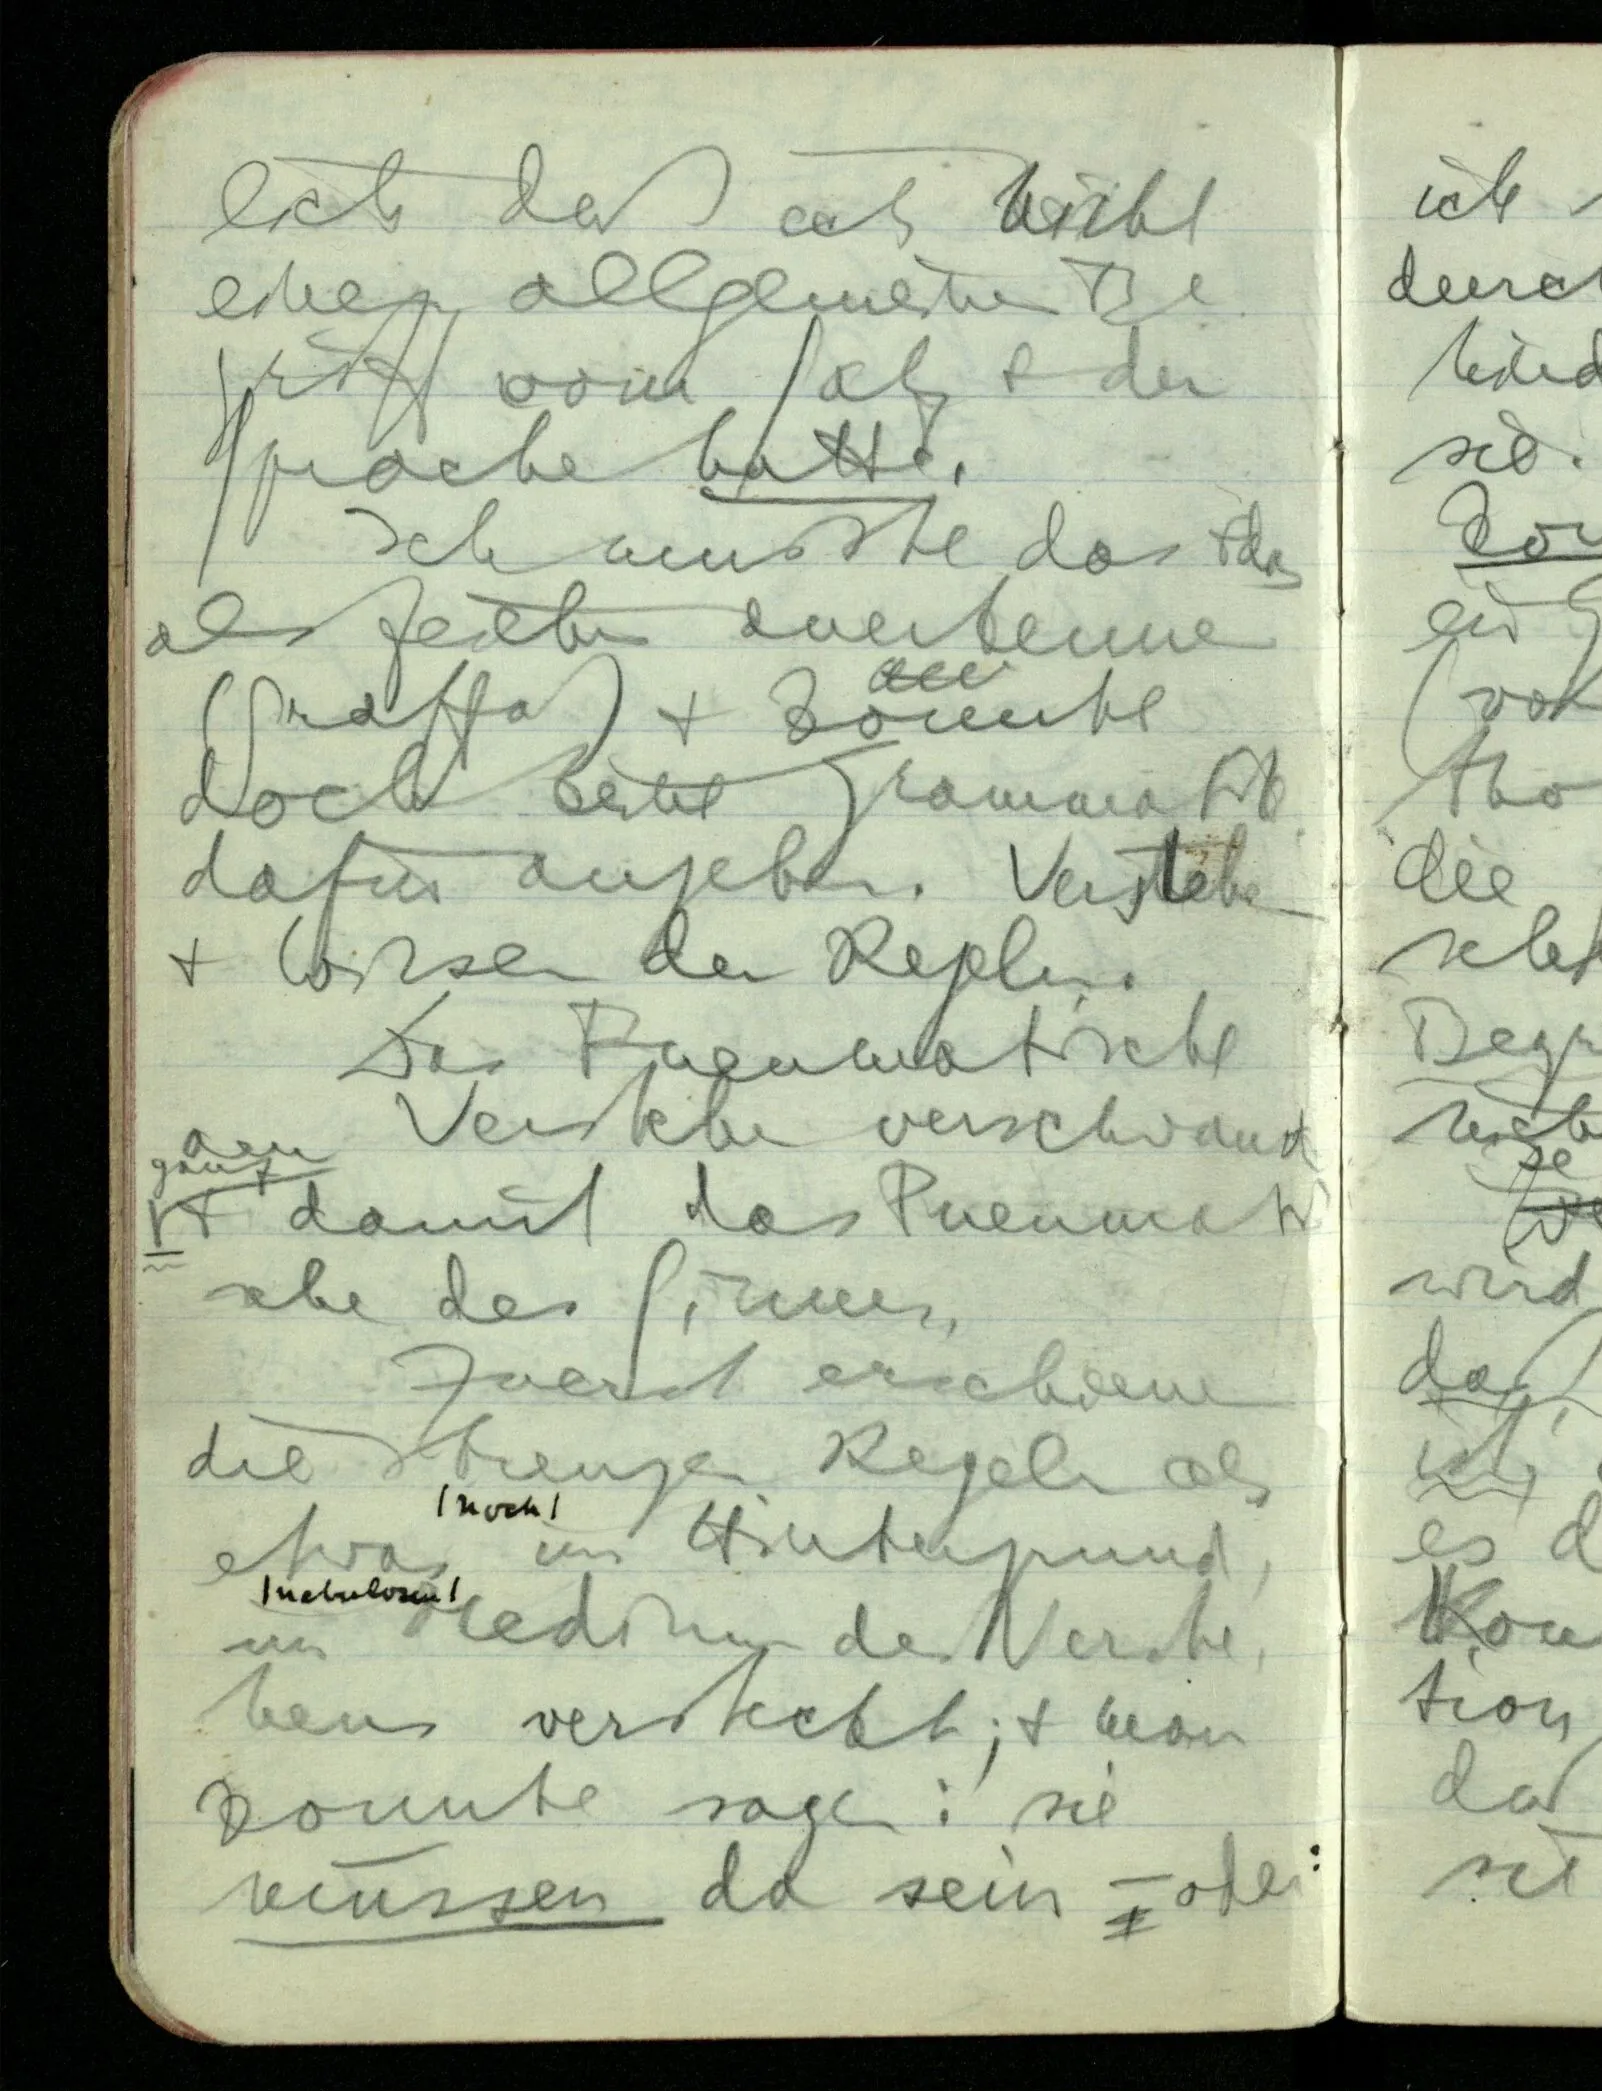 lich daß ich nicht
einen allgemeinen Be
griff vom Satz & der
Sprache hatte.
Ich mußte das & das
als Zeichen anerkennen
(Sraffa) & konnte
doch keine Grammatik
dafür angeben. Verstehen
& Wissen der Regeln.
Das Pneumatische
Verstehen verschwand
ganz
& damit das Pneumati
sche des Sinnes.
Zuerst erschienen
die strengen Regeln als
|noch|
etwas im Hintergrund,
|nebulosen|
im Medium des Verste
hens versteckt; & man
konnte sagen: sie
müssen da sein – oder:
ich
durch
sie.
die
wird
ich
es d
tion